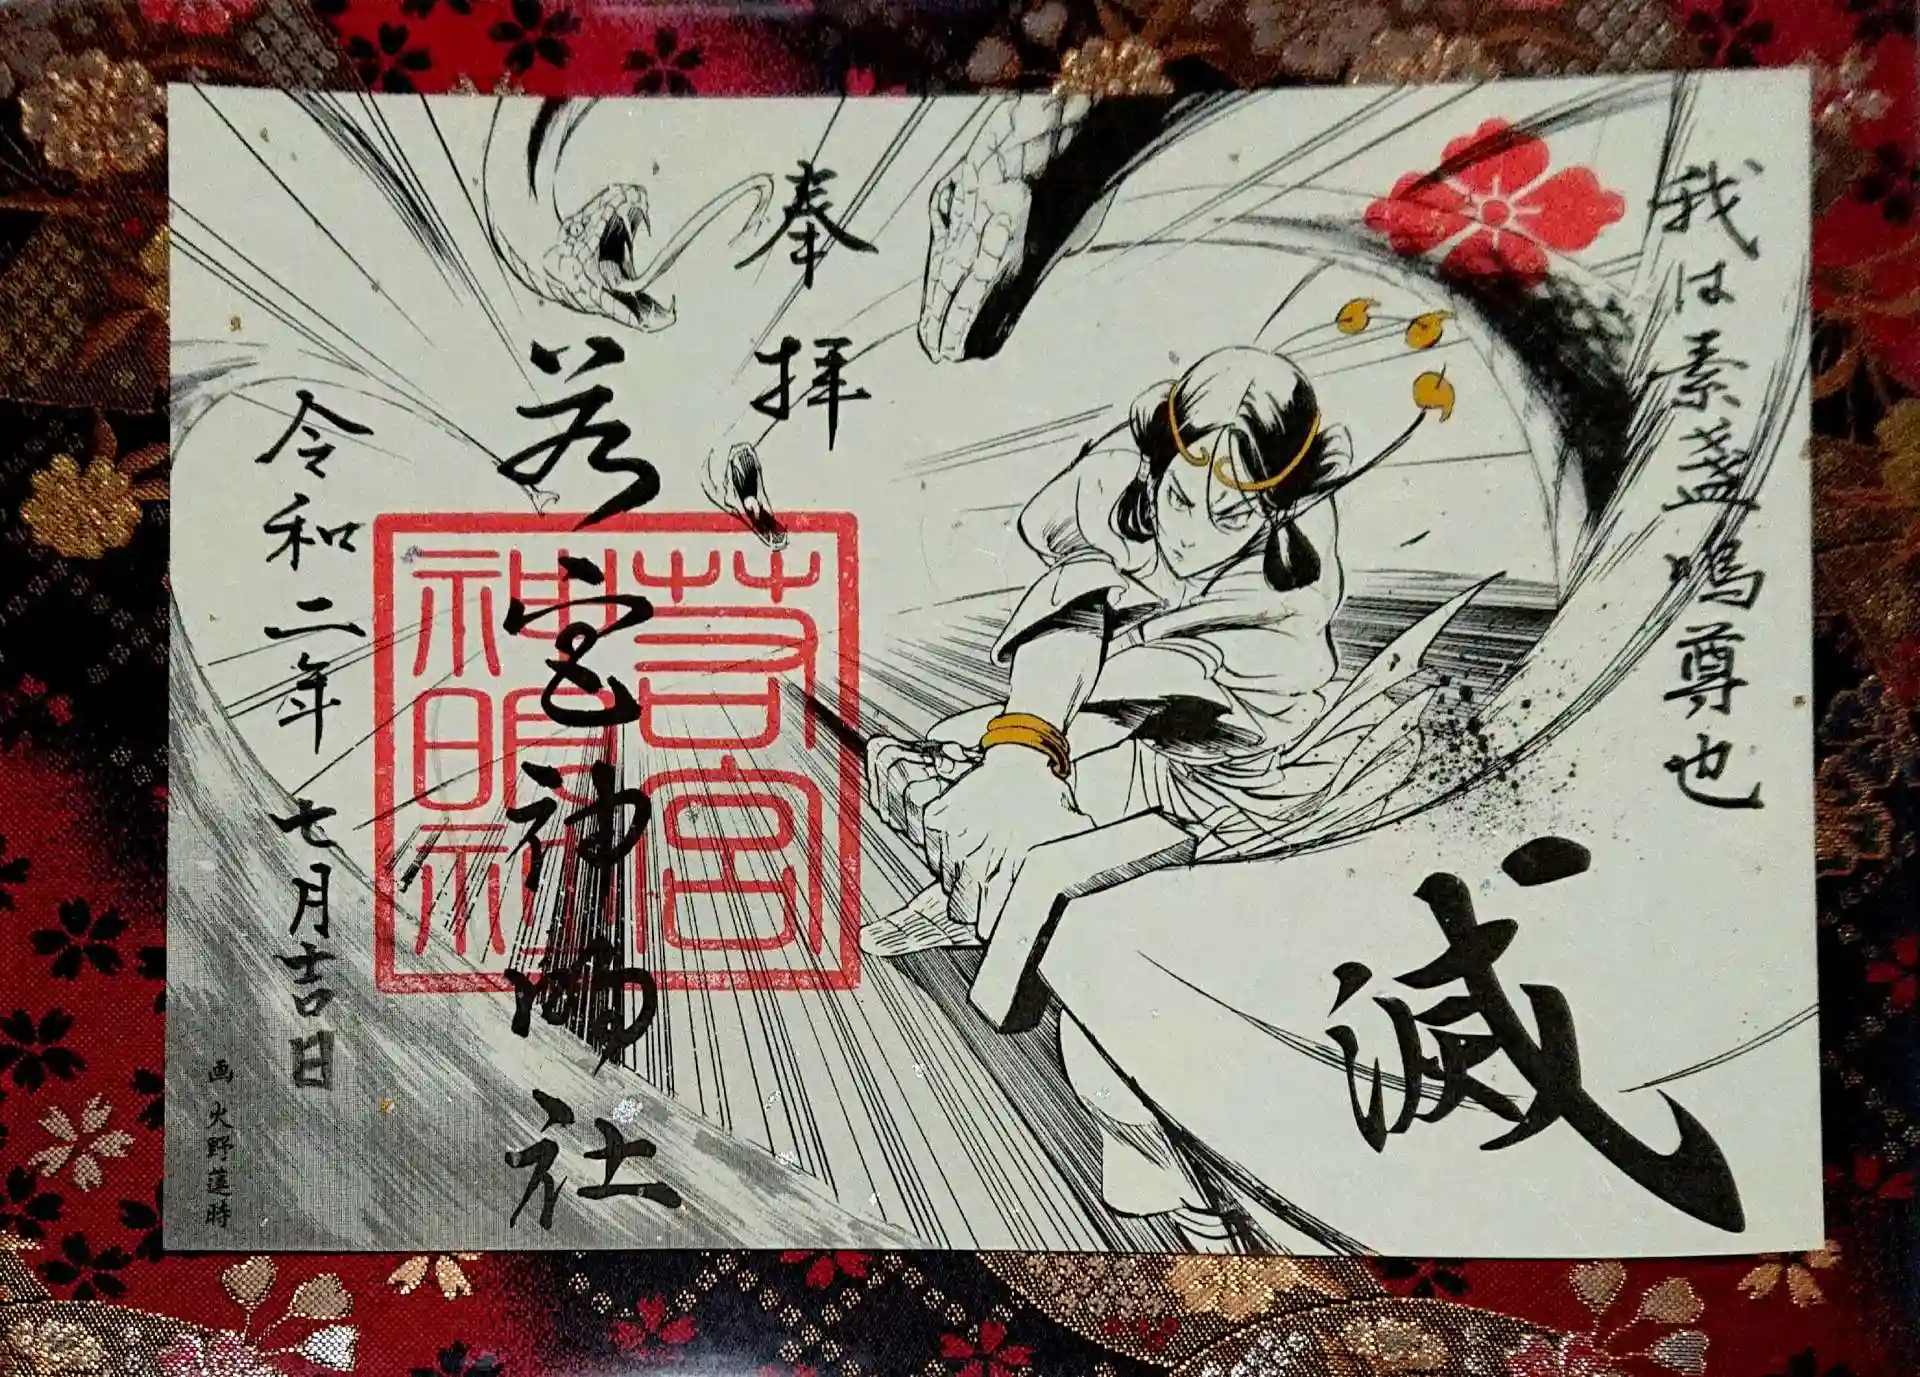 我は素盞嗚尊也
滅
奉拝
若宮神明社
若宮
神明社
令和二年七月吉日
画 火野蓮時